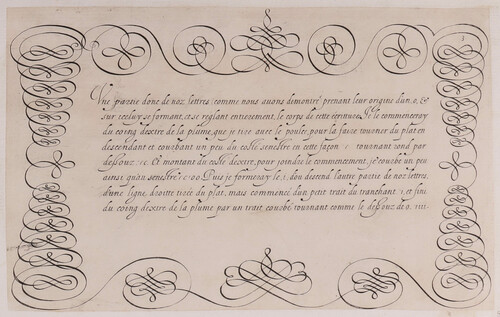 Vne partie donc de noz lettres (comme nous auons demontré) prenant leur origine d'un .o, &
sur icelluy se formant, et se reglant entierement, le corps de cette écriture, Ie le commenceray
du coing dextre de la plume, que je tire auec le poulce, pour la faire tourner du plat en
descendant et courbant un peu du costé senestre en cette façon ı tournant rond par
dessouz . ıc . Et montant du costé dextre, pour joindre le commencement, je courbe un peu
ainsi qu'au senestre : ıco o Puis je formeray le .ı. dou descend l'autre partie de noz lettres,
d'une ligne droitte tirée du plat, mais commencé d'un petit trait du tranchant ı. et fini
du coing dextre de la plume par un trait courbé tournant comme le dessouz de o. ıııı